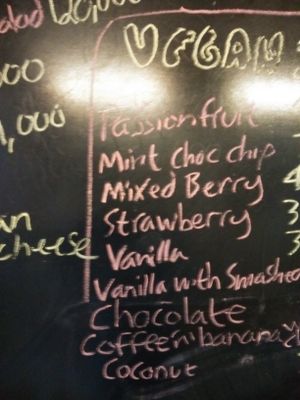 alad 120,000
VEGAN
000
1,000
Passionfruit
Mint Choc chip
Mixed Berry 4
an Strawberry 3
cheese Vanilla 3
Vanilla with Smashed
Chocolate
Coffee'n'banana
Coconut